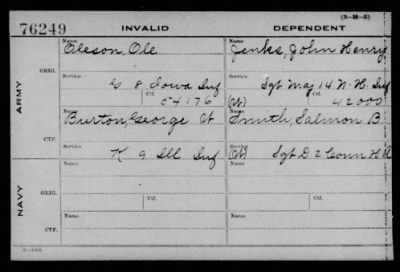 (3-H-3)
76249 INVALID DEPENDENT
Name Name
Oleson, Ole Jenks, John Henry
ARMY
ORIG.
Service Service
G 8 Iowa Inf Sgt Maj 14 N.H. Inf
Ctf. Ctf.
54176 (W) 42000
Name Name
Burton, George W Smith, Salmon B
CTF.
Service Service
K 9 Ill Inf (W) Sgt D 2 Conn H A
NAVY
Name Name
ORIG.
Service Ctf. Service Ctf.
Name Name
CTF.
Service Service